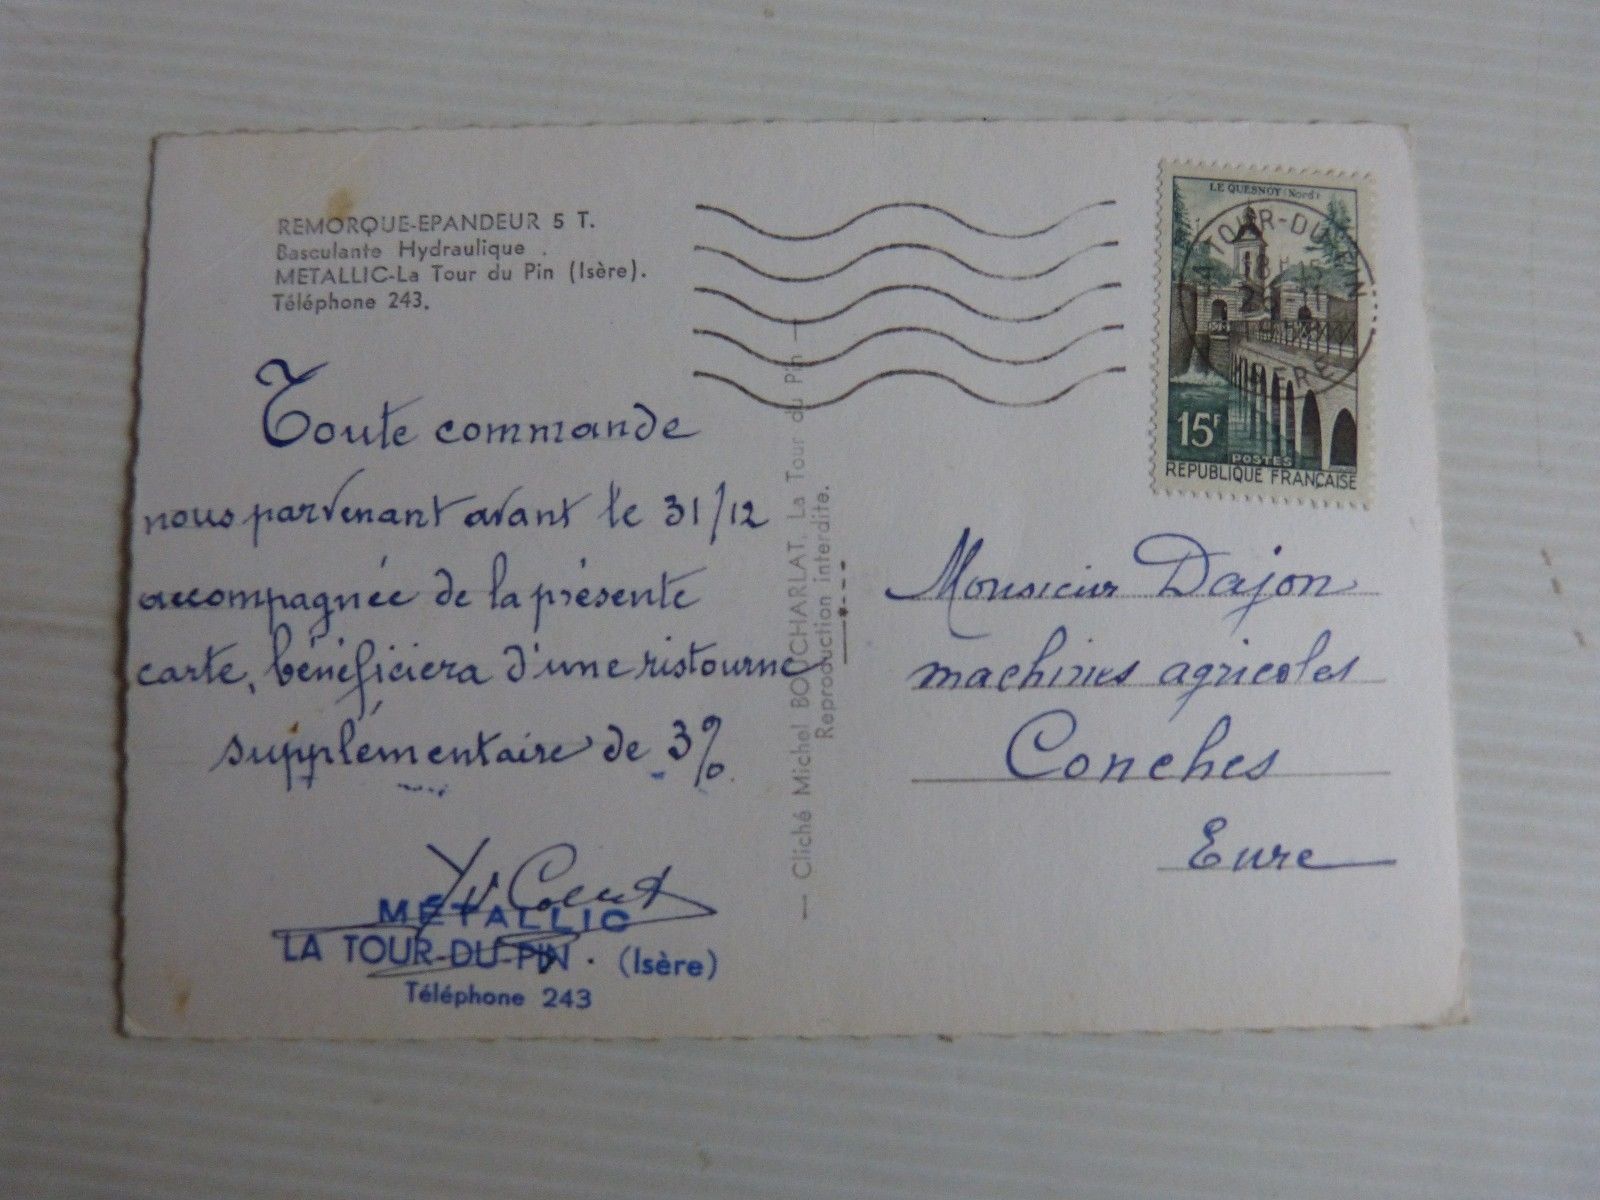 REMORQUE-EPANDEUR 5 T.
Basculante Hydraulique .
METALLIC-La Tour du Pin (Isère).
Téléphone 243.
Toute commande
nous parvenant avant le 31/12
accompagnée de la présente
carte, bénéficiera d'une ristourne
supplémentaire de 3%
METALLIC
LA TOUR-DU-PIN . (Isère)
Téléphone 243
— Cliché Michel BOUCHARLAT, La Tour du Pin —
Reproduction interdite.
LE QUESNOY (Nord)
LA TOUR-DU-PIN
ISERE
15F
POSTES
REPUBLIQUE FRANÇAISE
Monsieur Dajon
machines agricoles
Conches
Eure